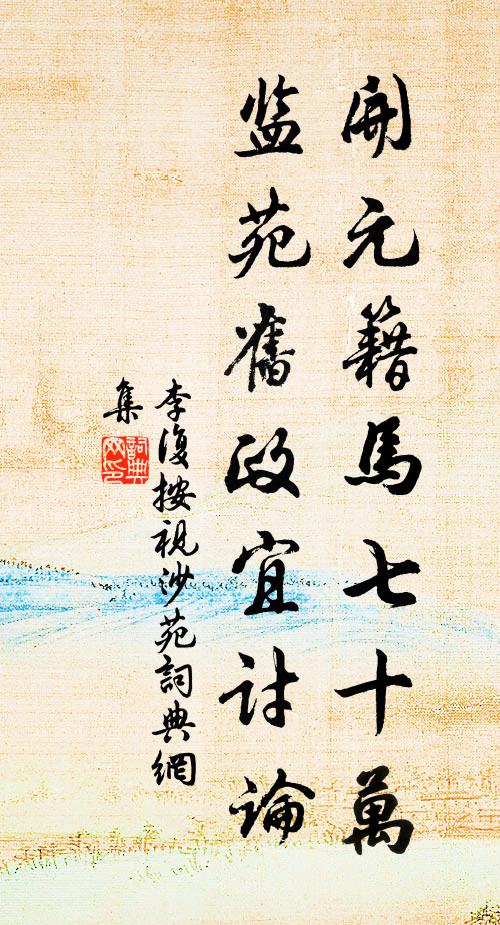 開元籍馬七十萬
监苑舊政宜討論
李復按視沙苑詞典網
集
詞典
网印